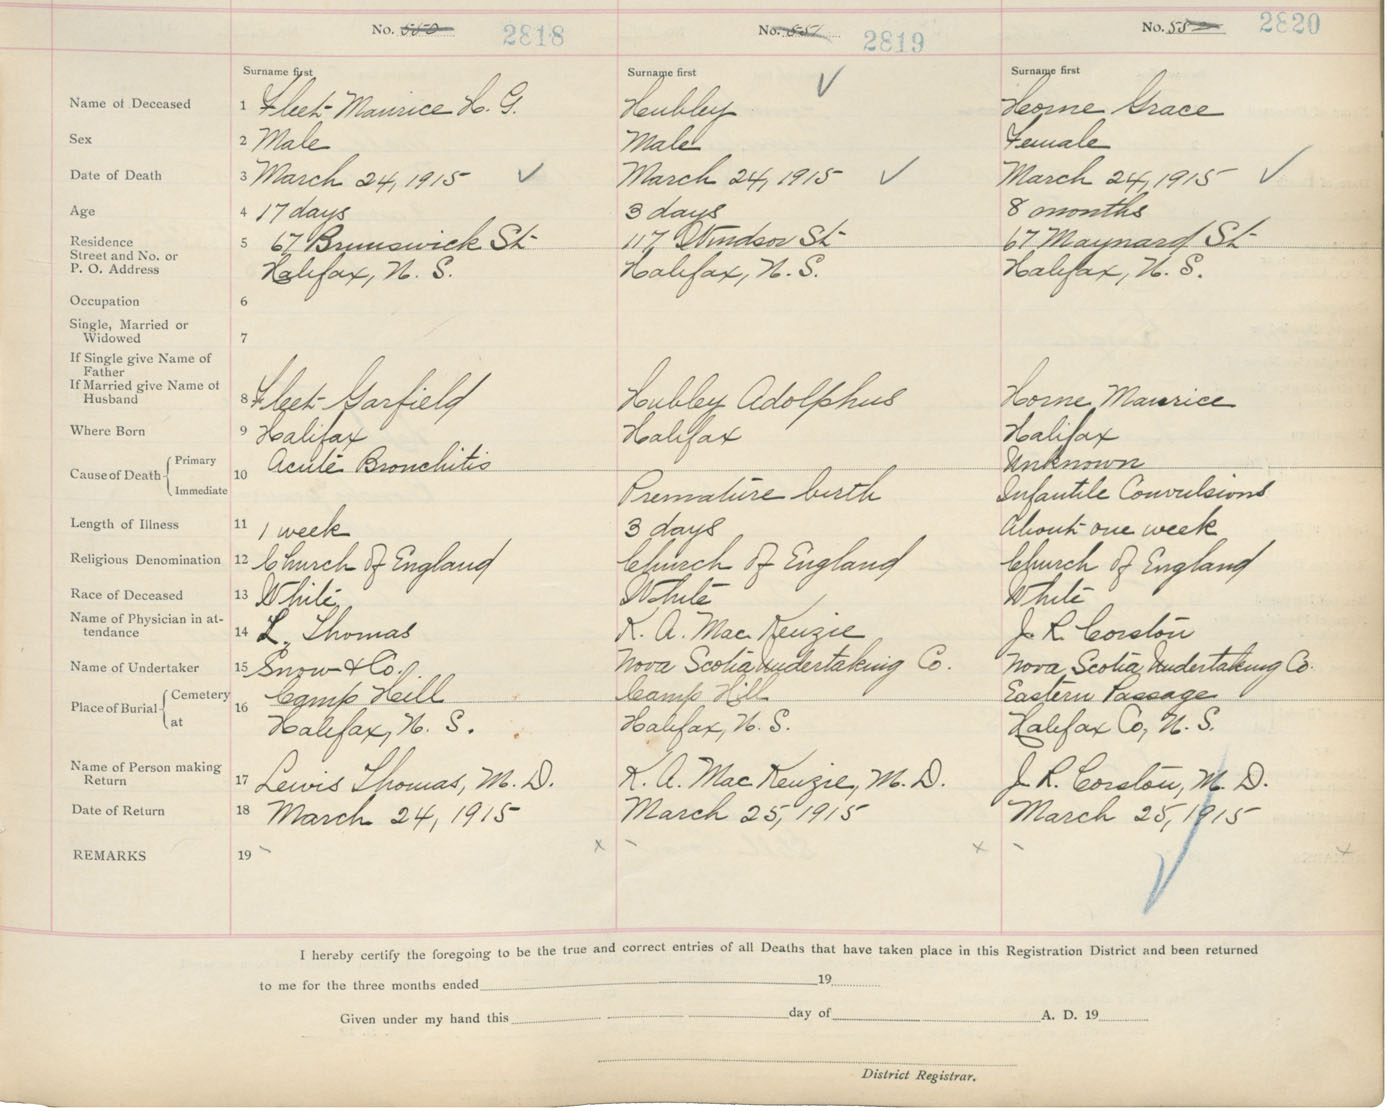 No. 550 2818 No. 551 2819 No. 552 2820
Surname first Surname first Surname first
Name of Deceased 1 Fleet Maurice H. G. Hubley Horne Grace
Sex 2 Male Male Female
Date of Death 3 March 24, 1915 March 24, 1915 March 24, 1915
Age 4 17 days 3 days 8 months
Residence
Street and No. or 5 67 Brunswick St 117 Windsor St 67 Maynard St
P. O. Address Halifax, N. S. Halifax, N. S. Halifax, N. S.
Occupation 6
Single, Married or
Widowed 7
If Single give Name of
Father
If Married give Name of
Husband 8 Fleet Garfield Hubley Adolphus Horne Maurice
Where Born 9 Halifax Halifax Halifax
Cause of Death Primary 10 Acute Bronchitis Unknown
Immediate Premature birth Infantile Convulsions
Length of Illness 11 1 week 3 days About one week
Religious Denomination 12 Church of England Church of England Church of England
Race of Deceased 13 White White White
Name of Physician in at-
tendance 14 L. Thomas K. A. Mac Kenzie J. R. Corston
Name of Undertaker 15 Snow & Co. Nova Scotia Undertaking Co. Nova Scotia Undertaking Co.
Place of Burial Cemetery 16 Camp Hill Camp Hill Eastern Passage
at Halifax, N. S. Halifax, N. S. Halifax Co, N. S.
Name of Person making
Return 17 Lewis Thomas, M. D. K. A. Mac Kenzie, M. D. J. R. Corston, M. D.
Date of Return 18 March 24, 1915 March 25, 1915 March 25, 1915
REMARKS 19
I hereby certify the foregoing to be the true and correct entries of all Deaths that have taken place in this Registration District and been returned
to me for the three months ended 19
Given under my hand this day of A. D. 19
District Registrar.